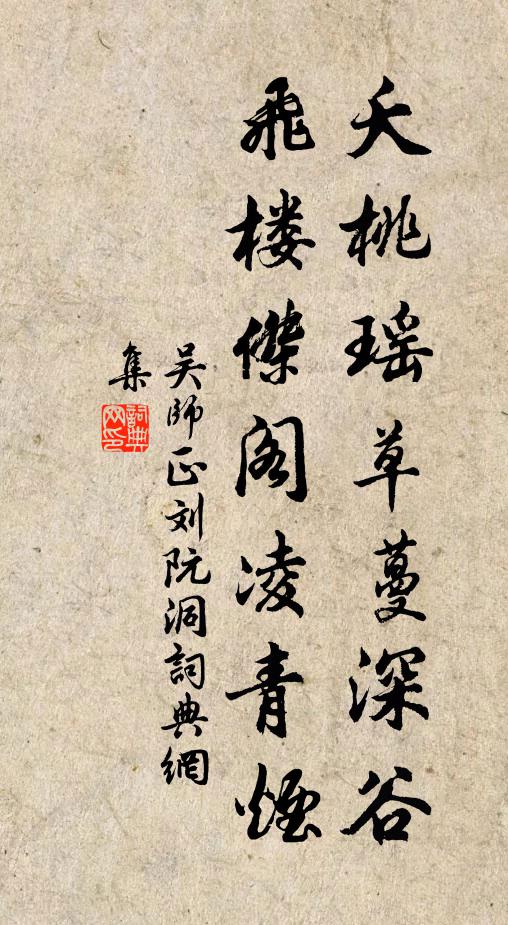 夭桃瑶草蔓深谷
飛楼傑阁凌青煙
吴師正刘阮洞詞典網
集
詞典網印